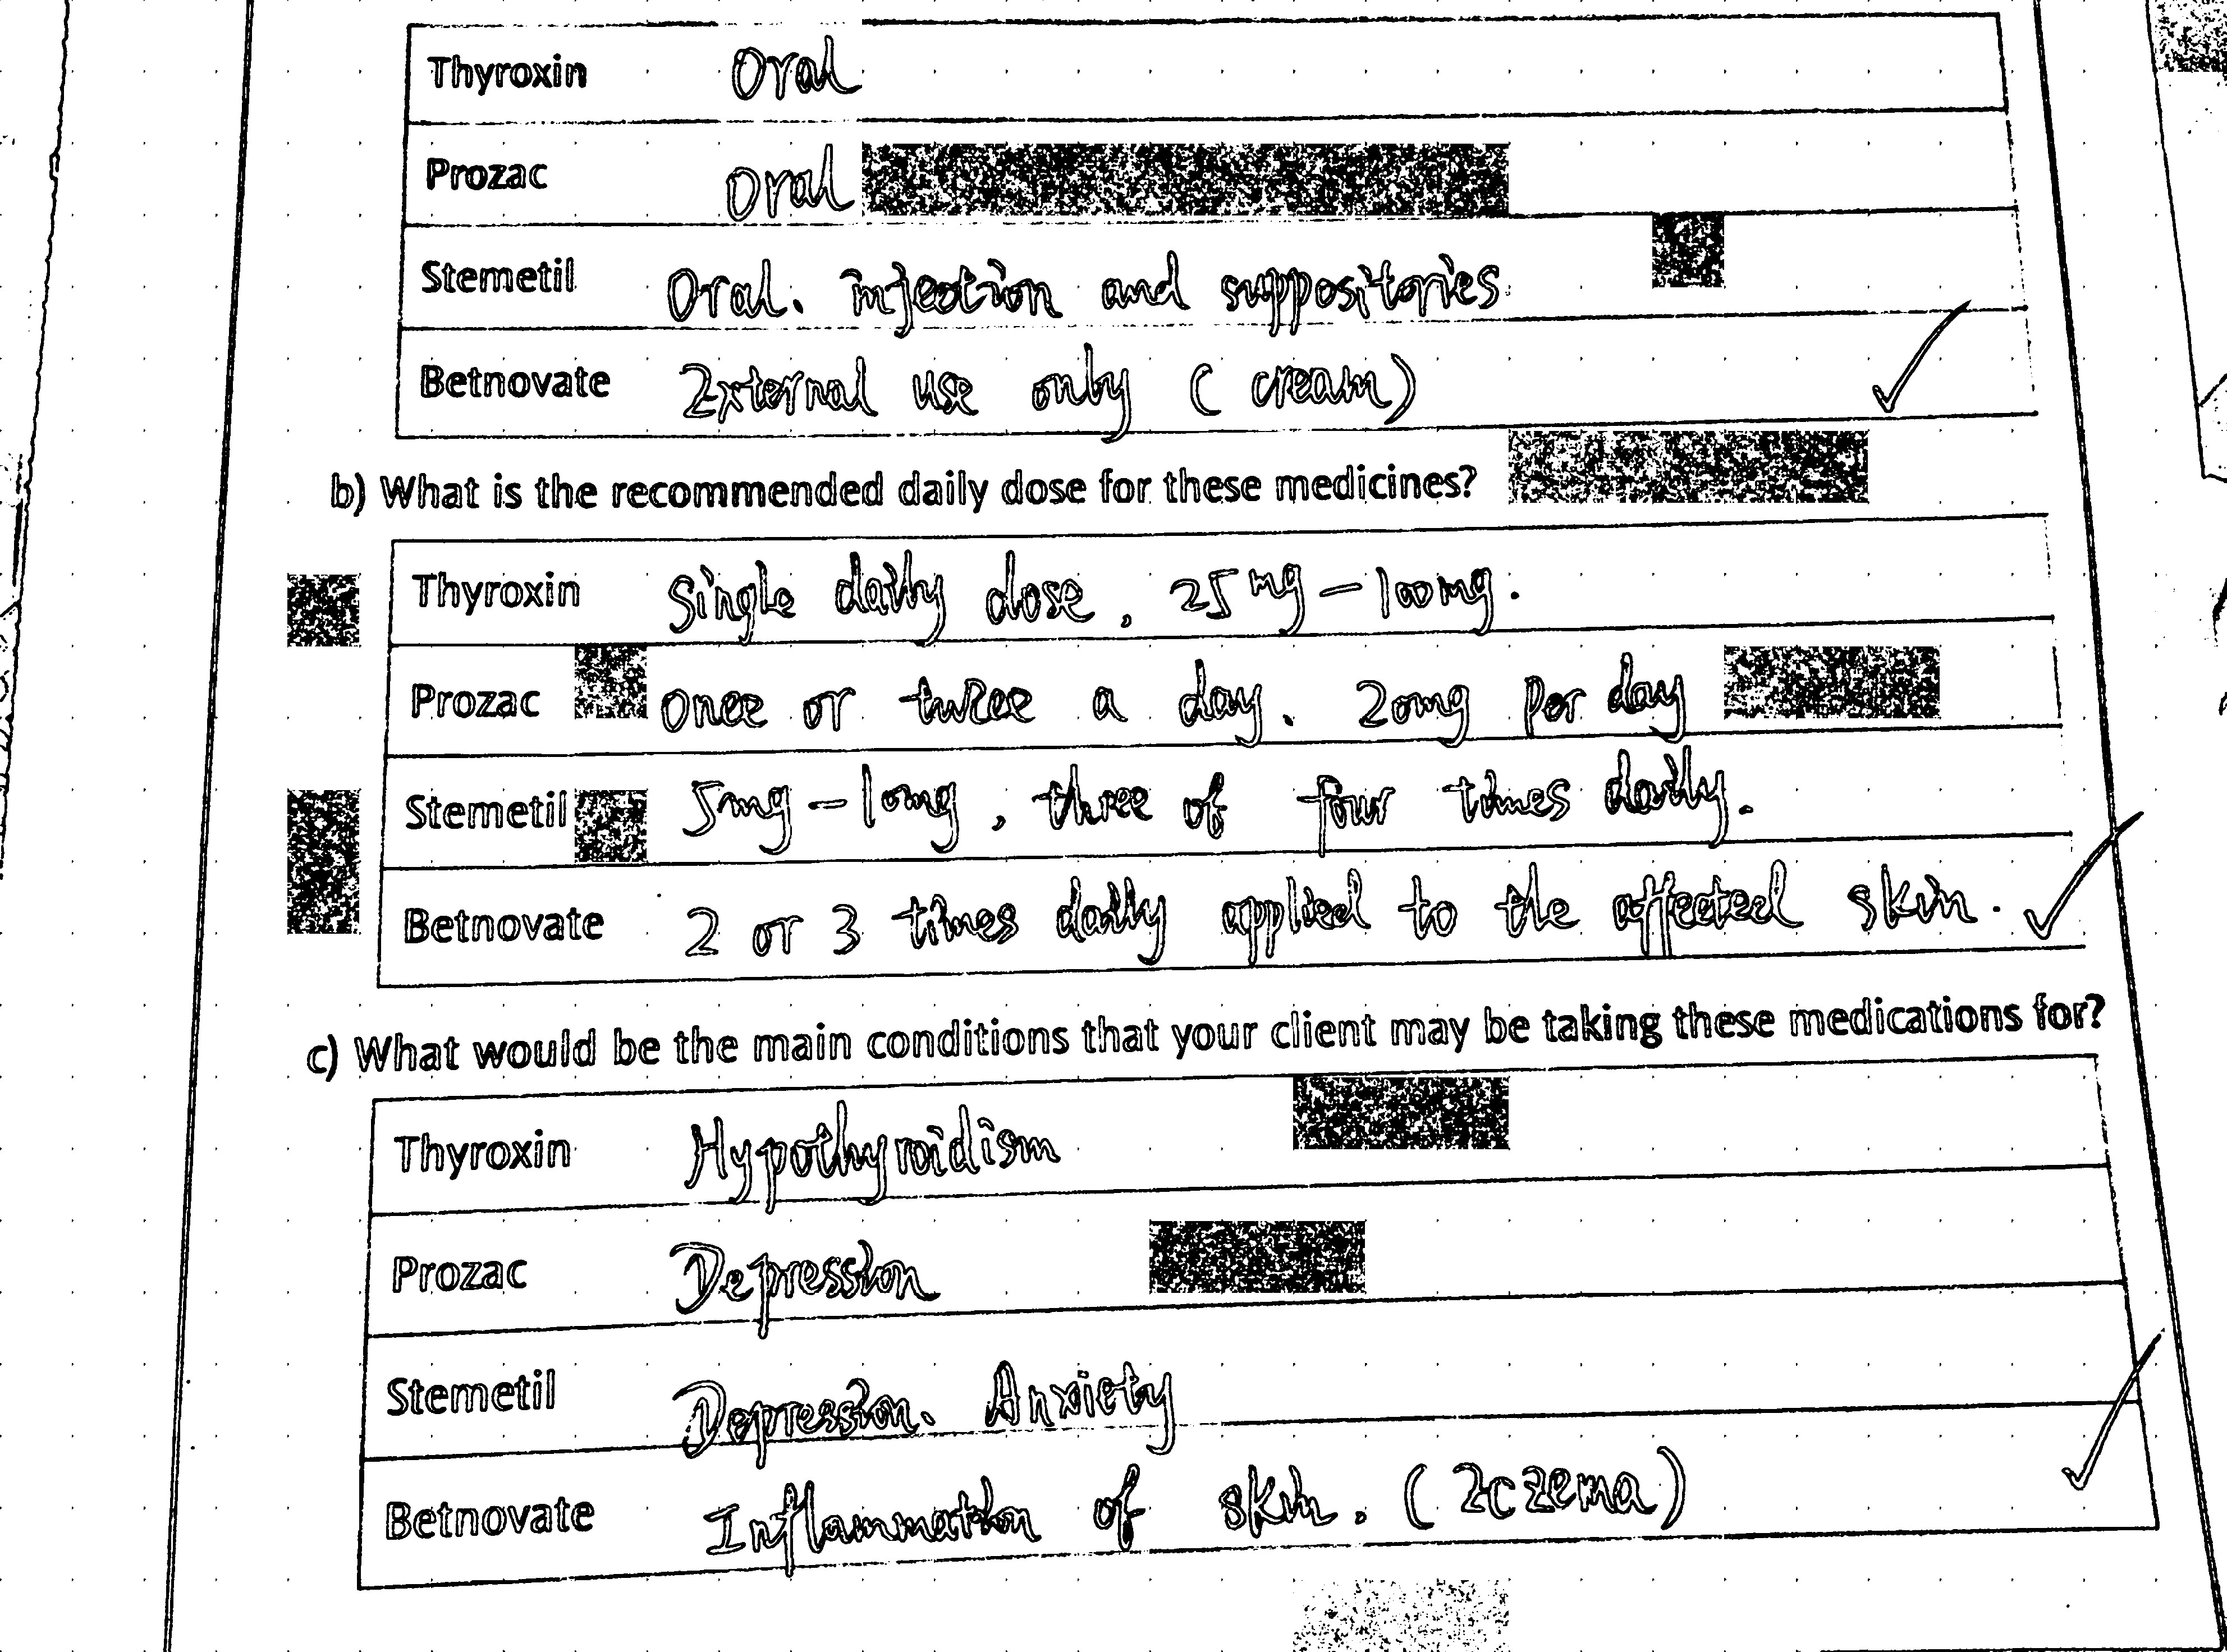 Thyroxin Oral
Prozac Oral
Stemetil Oral. injection and suppositories
Betnovate External use only (cream)
b) What is the recommended daily dose for these medicines?
Thyroxin Single daily dose, 25mg-100mg.
Prozac once or twice a day. 20mg per day
Stemetil 5mg-10mg, three of four times daily.
Betnovate 2 or 3 times daily applied to the affected skin.
c) What would be the main conditions that your client may be taking these medications for?
Thyroxin Hypothyroidism
Prozac Depression
Stemetil Depression. Anxiety
Betnovate Inflammation of skin. (Eczema)